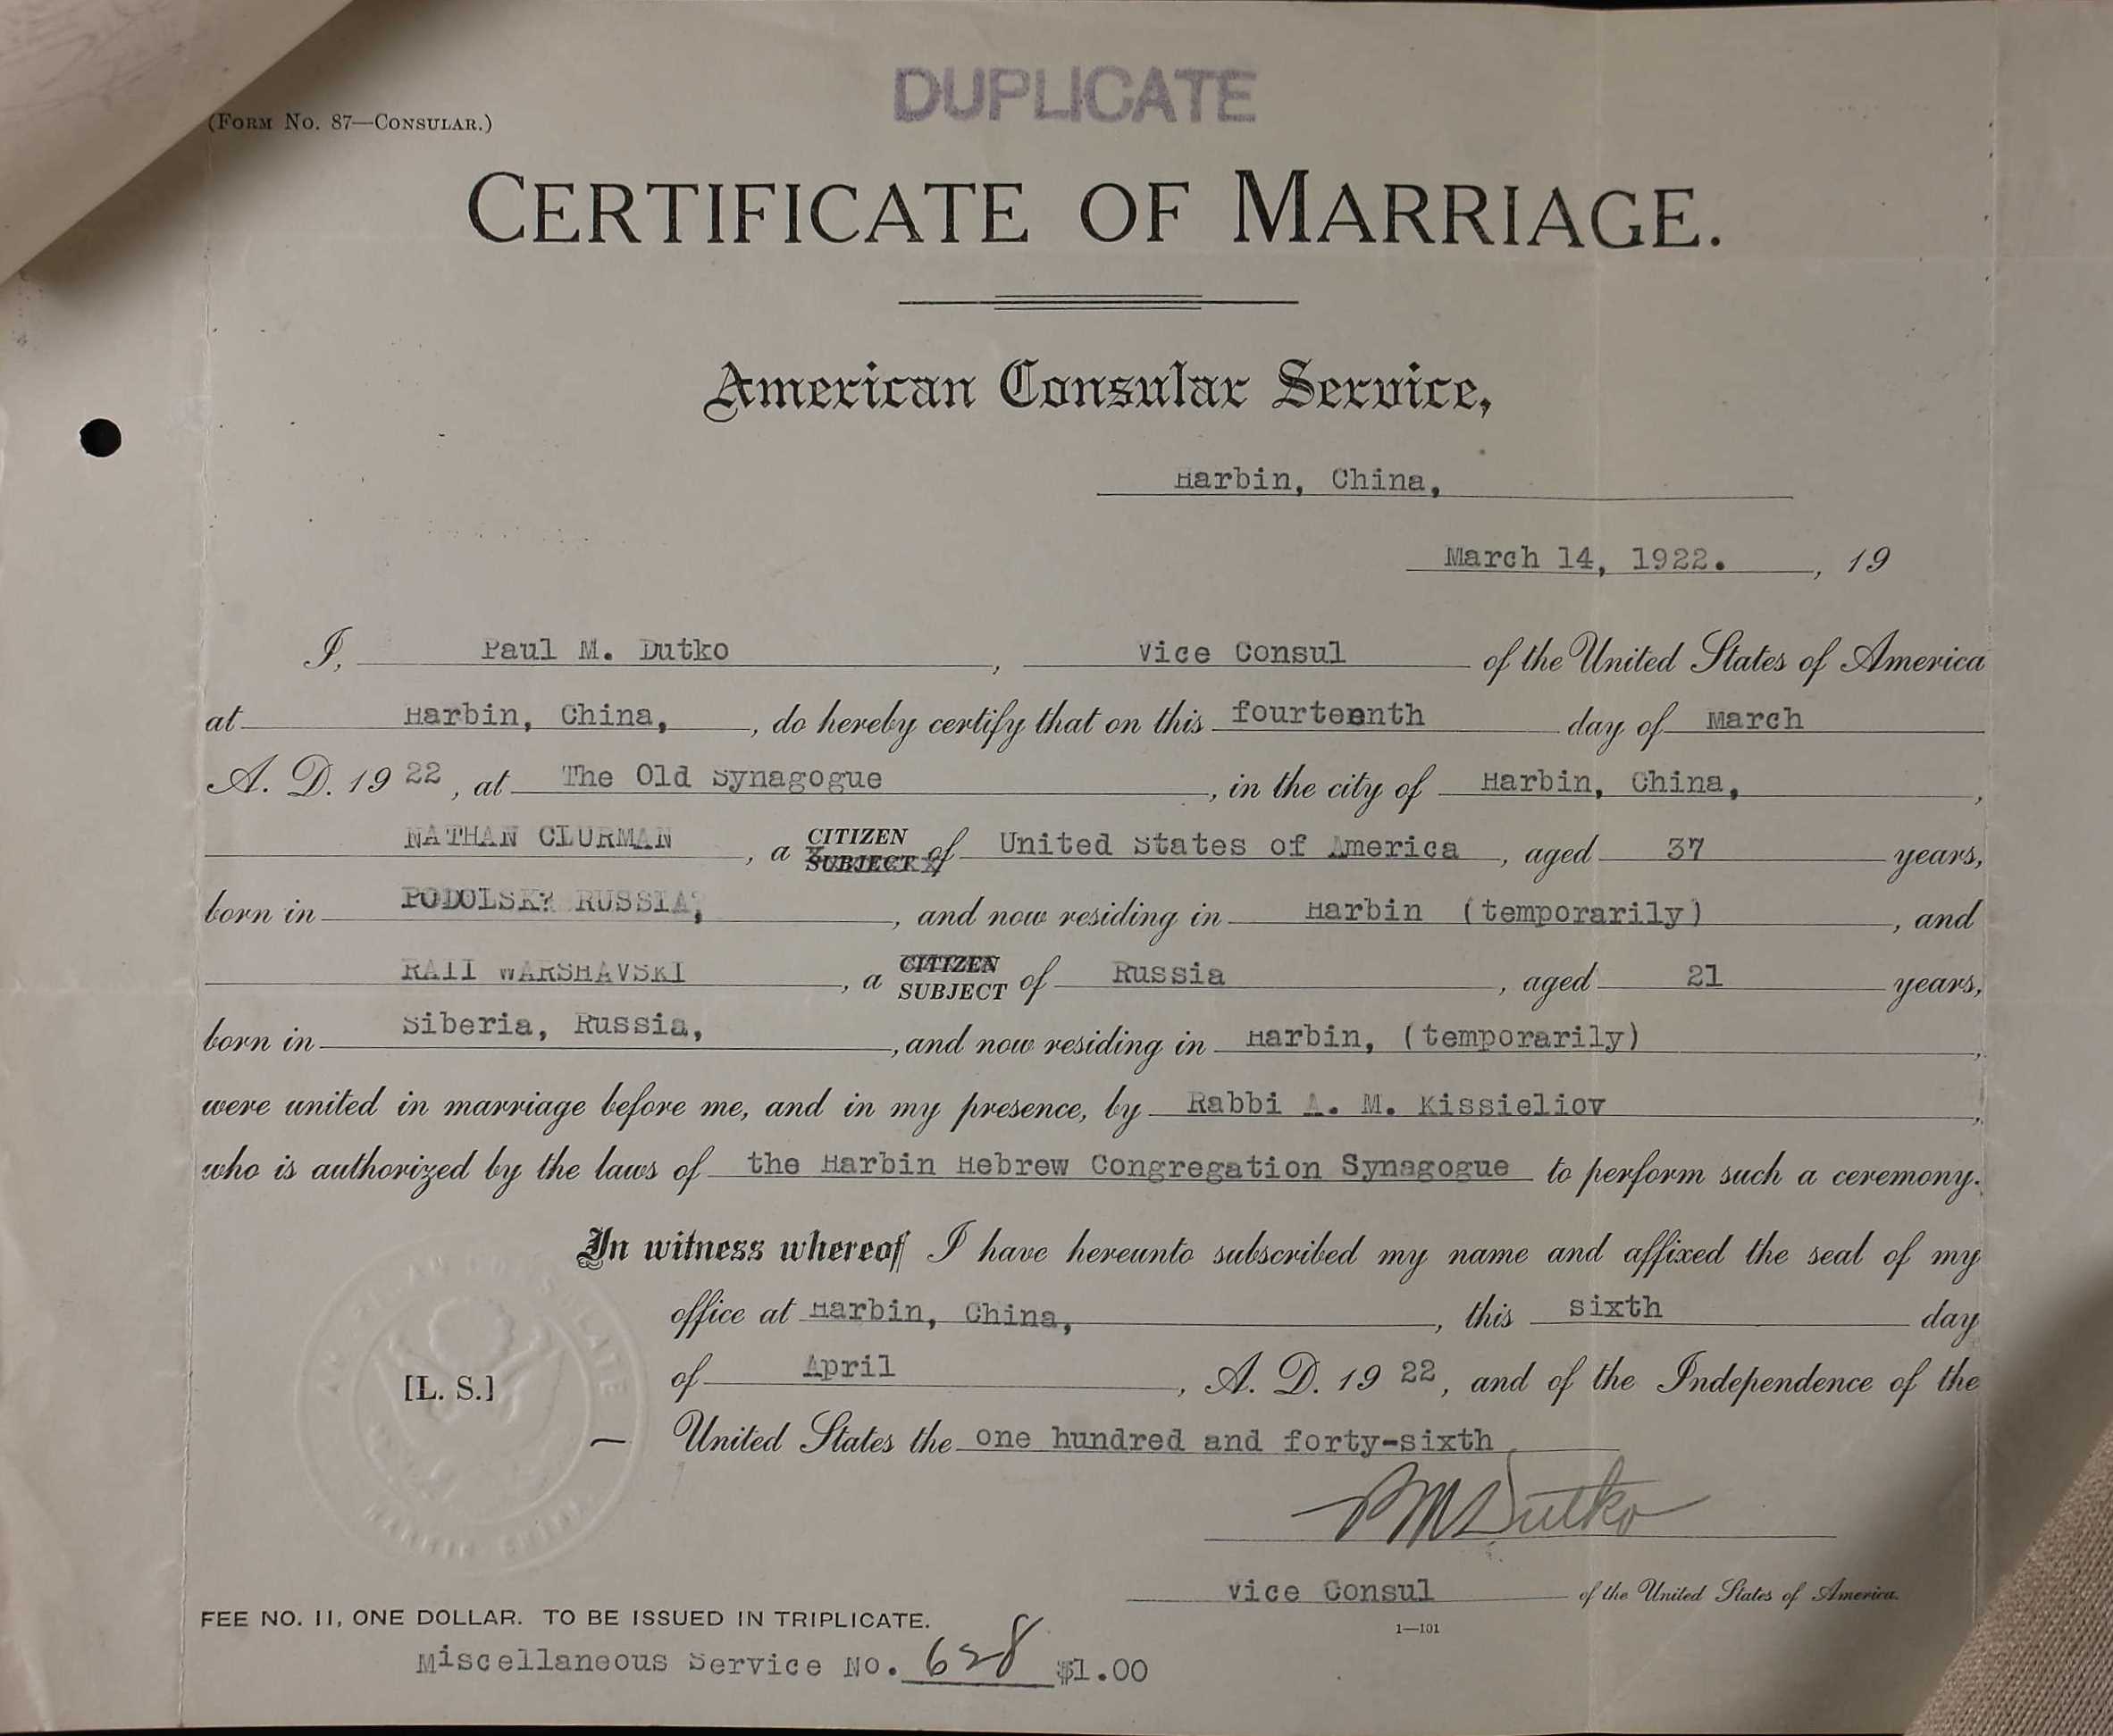 DUPLICATE
(FORM NO. 87—CONSULAR.)
CERTIFICATE OF MARRIAGE.
American Consular Service,
Harbin, China,
March 14, 1922. , 19
I, Paul M. Dutko , Vice Consul of the United States of America
at Harbin, China, , do hereby certify that on this fourteenth day of March
A. D. 19 22 , at The Old Synagogue , in the city of Harbin, China, ,
NATHAN CLURMAN , a CITIZEN SUBJECT of United States of America , aged 37 years,
born in PODOLSK? RUSSIA, , and now residing in Harbin (temporarily) , and
RAII WARSHAVSKI , a CITIZEN SUBJECT of Russia , aged 21 years,
born in Siberia, Russia, , and now residing in Harbin, (temporarily) ,
were united in marriage before me, and in my presence, by Rabbi A. M. Kissieliov ,
who is authorized by the laws of the Harbin Hebrew Congregation Synagogue to perform such a ceremony.
In witness whereof I have hereunto subscribed my name and affixed the seal of my
office at Harbin, China, , this sixth day
of April , A. D. 19 22, and of the Independence of the
[L. S.]
United States the one hundred and forty-sixth
PM Dutko
Vice Consul of the United States of America.
FEE NO. 11, ONE DOLLAR. TO BE ISSUED IN TRIPLICATE.
1—101
Miscellaneous Service No. 628 $1.00
AMERICAN CONSULATE
HARBIN CHINA